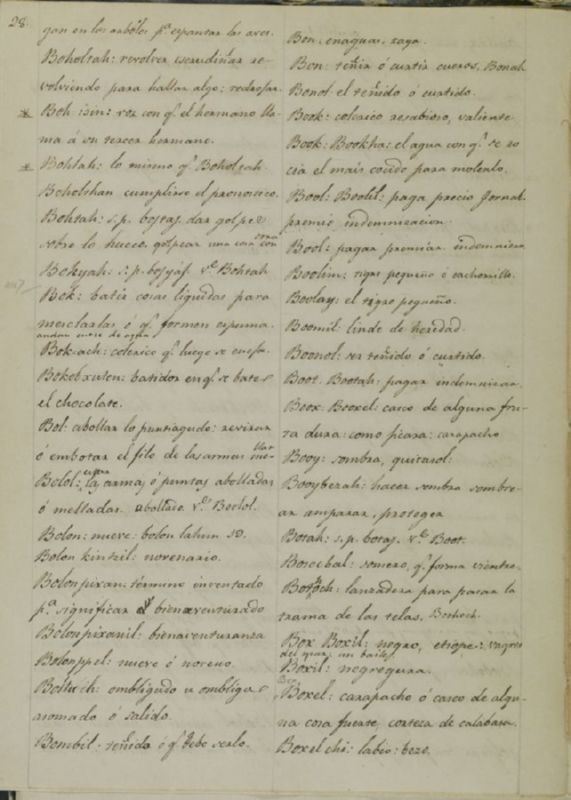 28.
gan en los arboles pa espantar las aves.
Boholtah: revolver escudriñar re-
volviendo para hallar algo: rebosar.
* Boh: isin: voz con q.e el hermano lla-
ma á su tercer hermano.
* Bohtah: lo mismo q.e Boholtah.
Boholchan cumplirse el pronostico.
Bohtah: s.p. bojtaj dar golpes
sobre lo hueco, golpear una cosa con
Bokyah: s.p. bojyaj v.e Bohtah
Bok: batir cosas liquidas para
mesclarlas ó q.e formen espuma.
Bok-ach: colerico q.e luego se enoja.
Bokobxuten: batidor en q.e se bate
el chocolate.
Bol: abollar lo puntiagudo: revirar
ó embotar el filo de las armas me-
llar
Bolol: las armas ó puntas abolladas
ó melladas abollado v.e Bochol.
Bolon: nueve: bolon lahun 19.
Bolon kintzil: novenario.
Bolonpixan: término inventado
p.a significar bienaventurado
Bolonpixanil: bienaventuranza
Bolonppel: nueve ó noveno.
Boltuch: ombligudo u ombligo
asomado ó salido.
Bombil: teñido ó q.e debe serlo.
Bon: enaguas, saya.
Bon: teñir ó curtir cueros, Bonah
Bonol: el teñido ó curtido.
Book: colerico resabioso, valiente
Book: Bookha: el agua con q.e se ro
cia el mais cocido para molerlo.
Bool: Boolil: paga precio Jornal
premio indemnizacion.
Bool: pagar premiar indemnizar
Boolim: tigre pequeño ó cachorrillo.
Boolay: el tigre pequeño.
Boomil: linde de heredad.
Boonol: ser teñido ó curtido.
Boot. Bootah: pagar indemnizar.
Boox. Booxel: casco de alguna fru-
ta dura: como jicara: carapacho
Booy: sombra, quitasol:
Booybezah: hacer sombra sombre-
ar amparar, proteger
Botah: s.p. botaj v.e Boot.
Botocbal: somero, q.e forma vientre
Botoch: lanzadera para pasar la
trama de las telas, Bohoch.
Box Boxil: negro, etiope: vagres
del gran: un baile
Boxil: negregura.
Boxel: carapacho ó casco de algu-
na cosa fuerte, corteza de calabaza.
Boxel chi: labio: bezo.